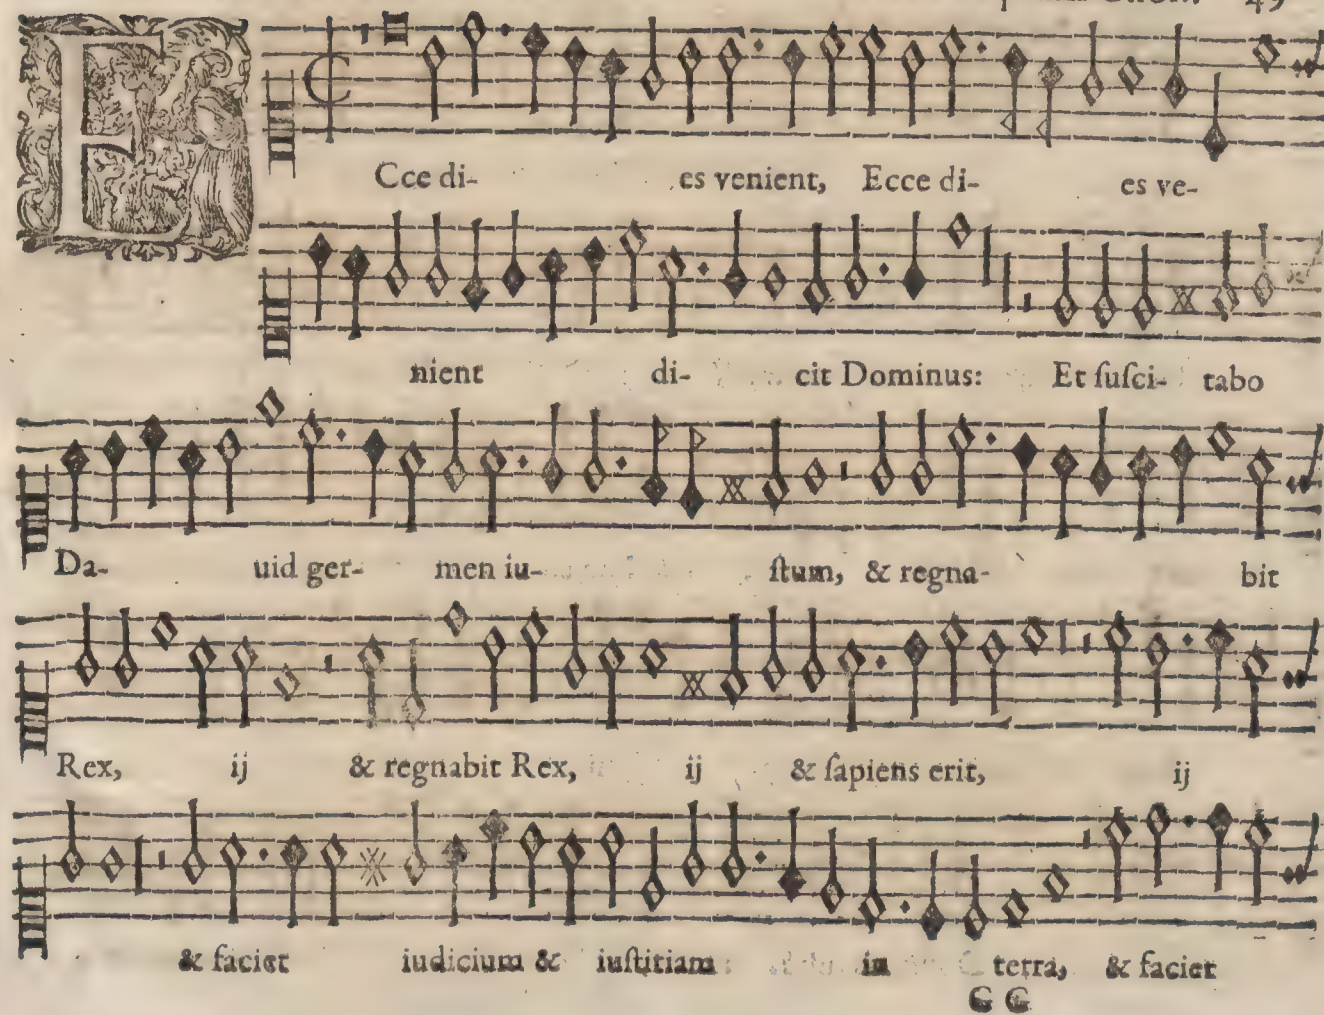 49
E Cce di- es venient, Ecce di- es ve-
nient di- cit Dominus: Et ſuſci- tabo
Da- uid ger- men iu- ſtum, & regna- bit
Rex, ij & regnabit Rex, ij & ſapiens erit, ij
& faciet iudicium & iuſtitiam in terra, & faciet
G G